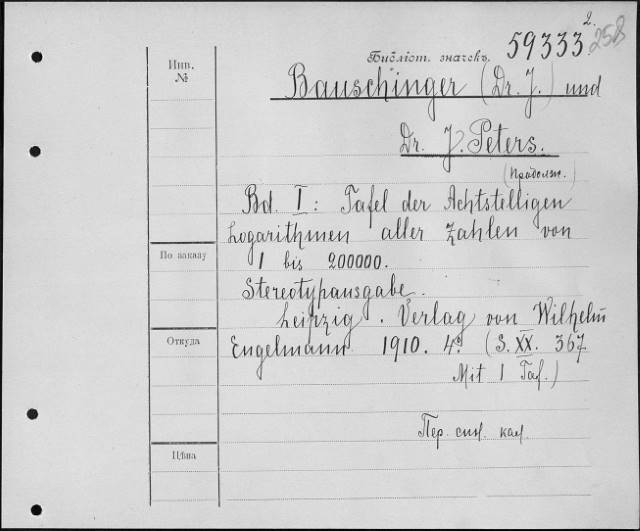 2.
59333 258
Инв.
№
Библіот. значекъ.
Bauschinger (Dr. J.) und
Dr. J. Peters.
(Продолж.)
Bd. I: Tafel der Achtstelligen
Logarithmen aller Zahlen von
По заказу
1 bis 200000.
Stereotypausgabe.
Leipzig. Verlag von Wilhelm
Откуда
Engelmann 1910. 4º. (S. XX. 367
Mit 1 Taf.)
Пер. син. кал.
Цѣна